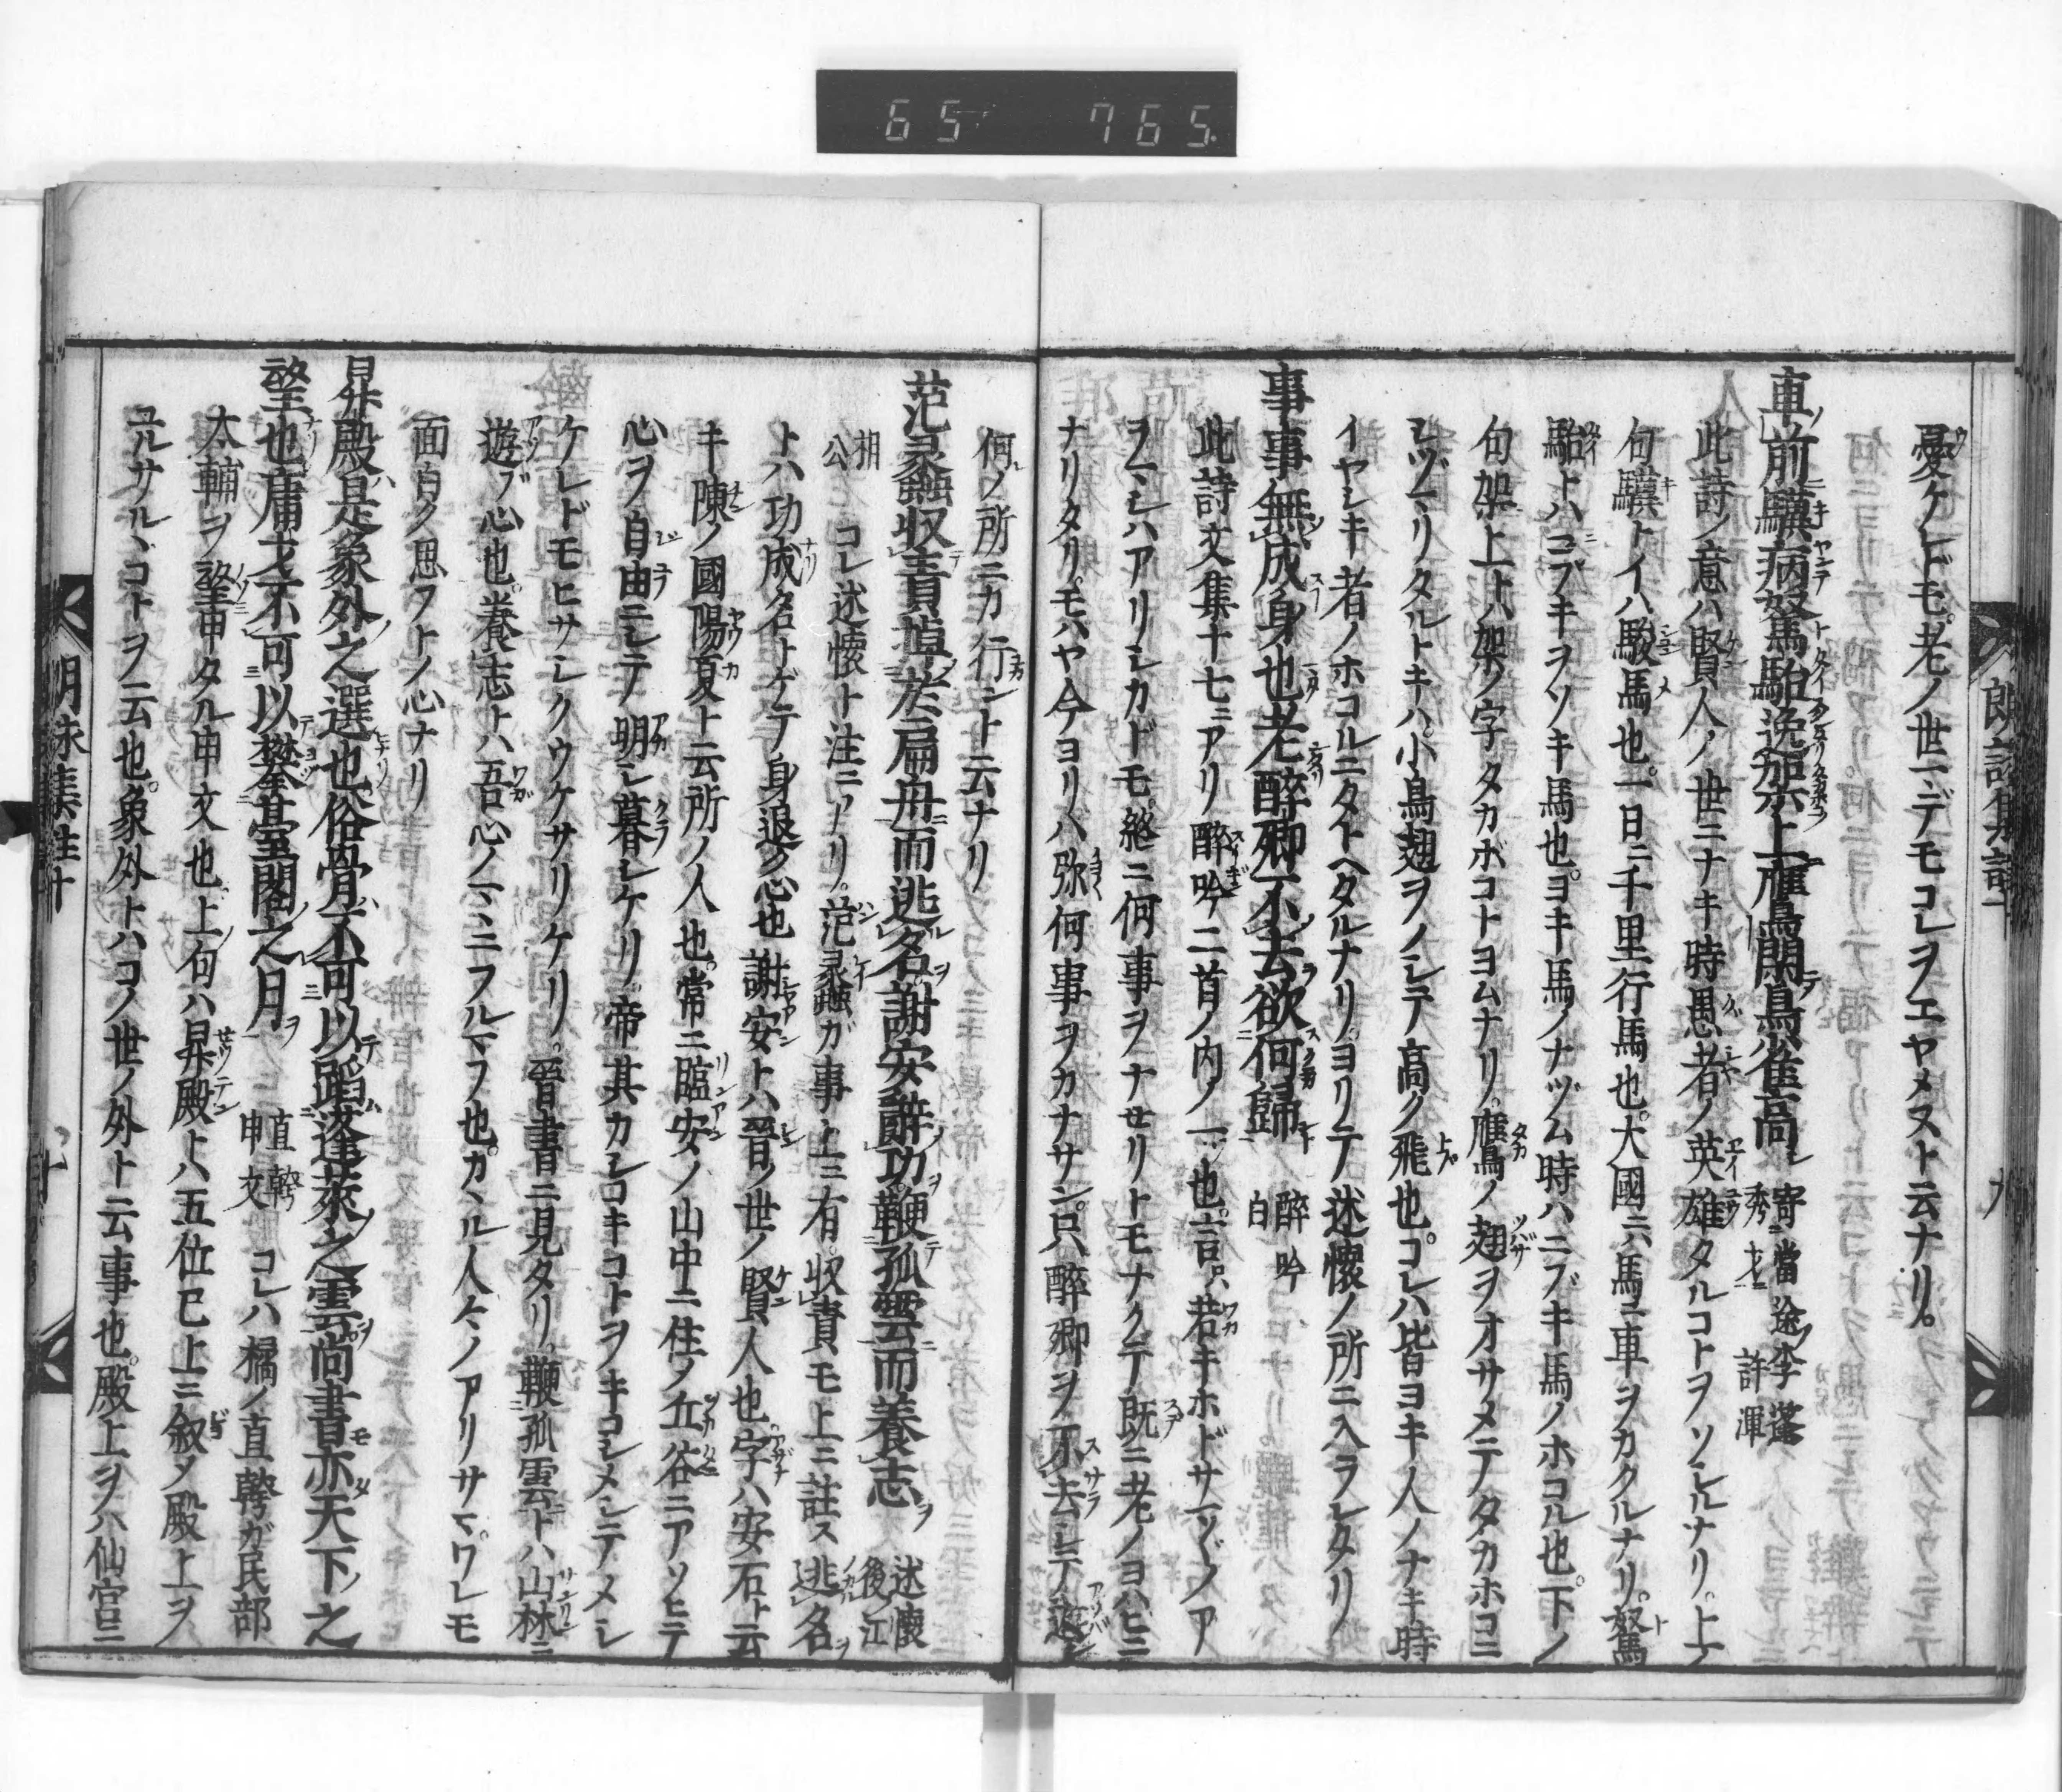 65 765
憂ケレドモ。老ノ世マデモコレヲエヤメヌト云ナリ。
車前驥病駑駘逸架上鷹閑鳥雀高 寄當途李蓬 秀才 許渾
此詩ノ意ハ賢人ノ世ニナキ時愚者ノ英雄タルコトヲソシルナリ。上ノ
句驥トイハ駿馬也。一日ニ千里行馬也。大國ニハ馬ニ車ヲカクルナリ。駑
駘トハニブキヲソキ馬也。ヨキ馬ノナヅム時ハニブキ馬ノホコル也。下ノ
句架上トハ架ノ字タカボコトヨムナリ。鷹ノ翅ヲオサメテタカホコニ
シヅマリタルトキハ。小鳥翅ヲノシテ高ク飛也。コレハ皆ヨキ人ノナキ時
イヤシキ者ノホコルニタトヘタルナリ。ヨリテ述懷ノ所ニ入ラレタリ
事事無成身也老醉郷不去欲何歸 醉吟 白
此詩文集十七ニアリ醉吟二首ノ内ノ一ツ也。言ハ若キホドサマヾノア
ラマシハアリシカドモ。終ニ何事ヲナセリトモナクテ既ニ老ノヨハヒニ
ナリタリ。モハヤ今ヨリハ弥何事ヲカナサン。只醉郷ヲ不去シテ遊ン
何ノ所ニカ行ント云ナリ
范蠡収責埴於扁舟而逃名謝安辭功鞭孤雲而養志 述懷 後江
相公 コレ述懷ト注ニアリ。范蠡ガ事上ニ有。収責モ上ニ註ス逃名
トハ功成名トゲテ身退ク心也 謝安トハ晉ノ世ノ賢人也。字ハ安石ト云
キ陳ノ國陽夏ト云所ノ人也。常ニ臨安ノ山中ニ住ノ丘谷ニアソヒテ
心ヲ自由ニシテ明シ暮シケリ。帝其カシコキコトヲキコシメシテメシ
ケレドモヒサシクウケサリケリ。晉書ニ見タリ。鞭孤雲トハ山林ニ
遊ブ心也。養志トハ吾心ノマヽニフルマフ也。カヽル人々ノアリサマ。ワレモ
面白ク思フトノ心ナリ
昇殿是象外之選也俗骨不可以蹈蓬萊之雲尚書亦天下之
望也庸才不可以攀臺閣之月 直幹 申文 コレハ橘ノ直幹ガ民部
太輔ヲ望申タル申文也。上句ハ昇殿トハ五位已上ニ叙メ殿上ヲ
ユルサルヽコトヲ云也。象外トハコノ世ノ外ト云事也。殿上ヲハ仙宮ニ